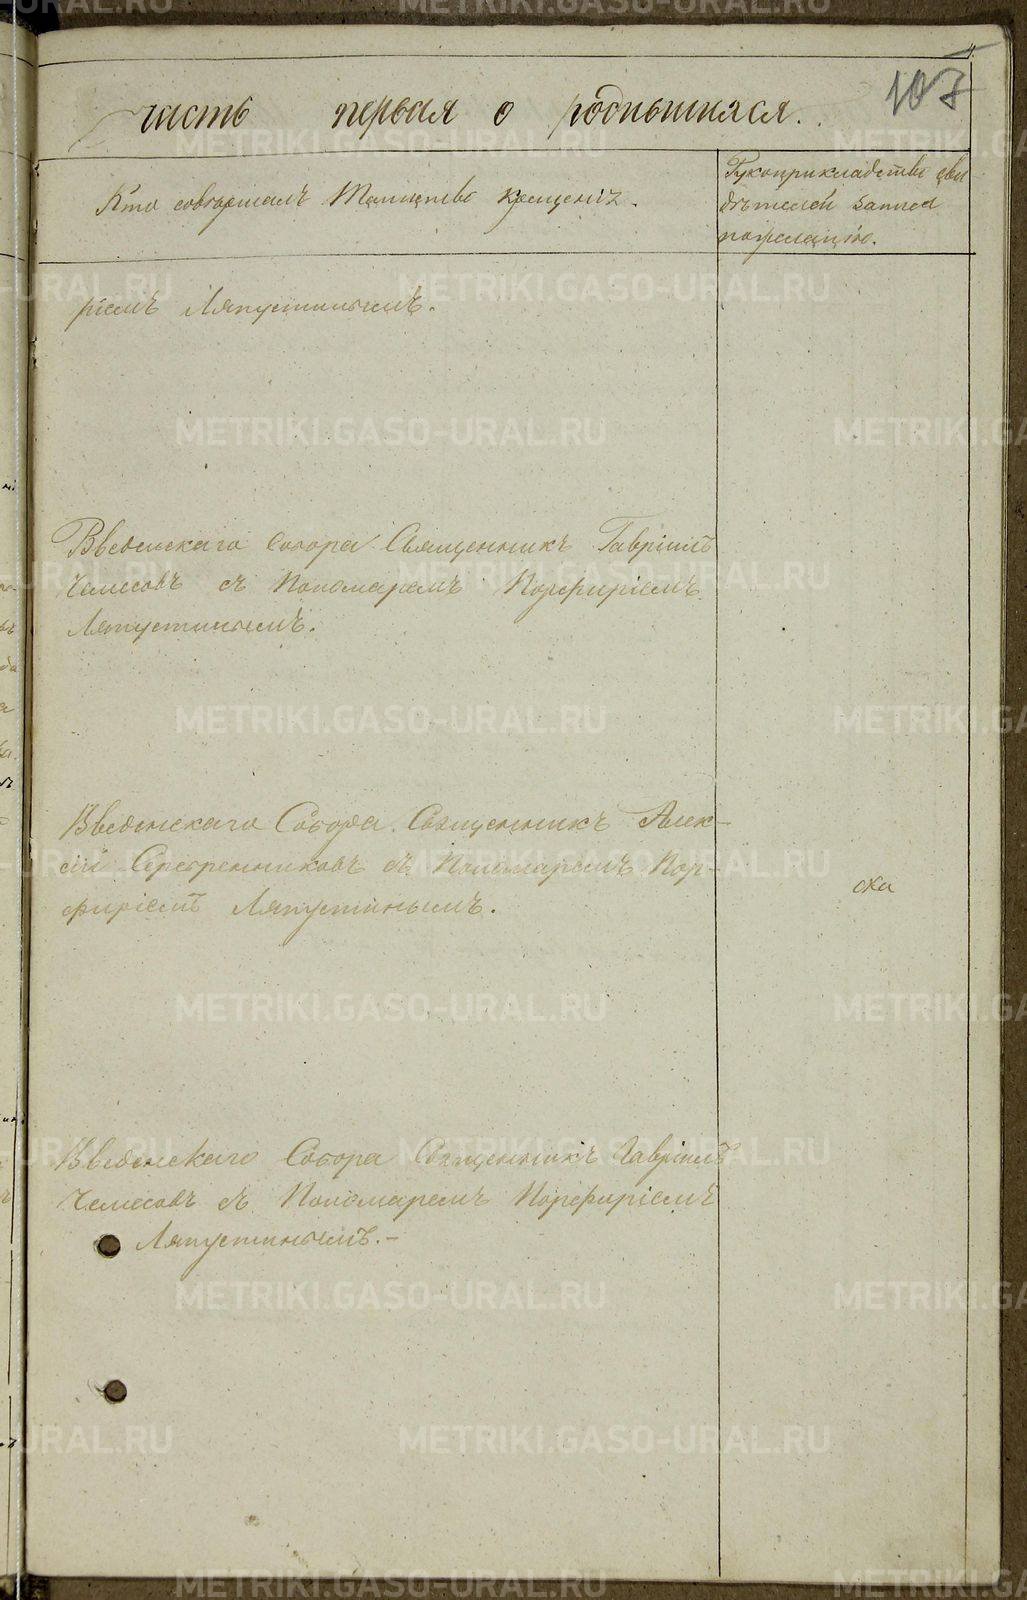 107
часть первая о родившихся.
Кто совершалъ Таинство Крещенія.
Рукоприкладство сви
дѣтелей записи
по желанію.
ріемъ Ляпустинымъ.
Введенскаго Собора Священникъ Гавріилъ
Чемесовъ съ Пономаремъ Порфиріемъ
Ляпустинымъ.
Введенскаго Собора Священникъ Алек-
сій Серебренниковъ съ Пономаремъ Пор-
фиріемъ Ляпустинымъ.
Введенскаго Собора Священникъ Гавріилъ
Чемесовъ съ Пономаремъ Порфиріемъ
Ляпустинымъ.-
METRIKI.GASO-URAL.RU